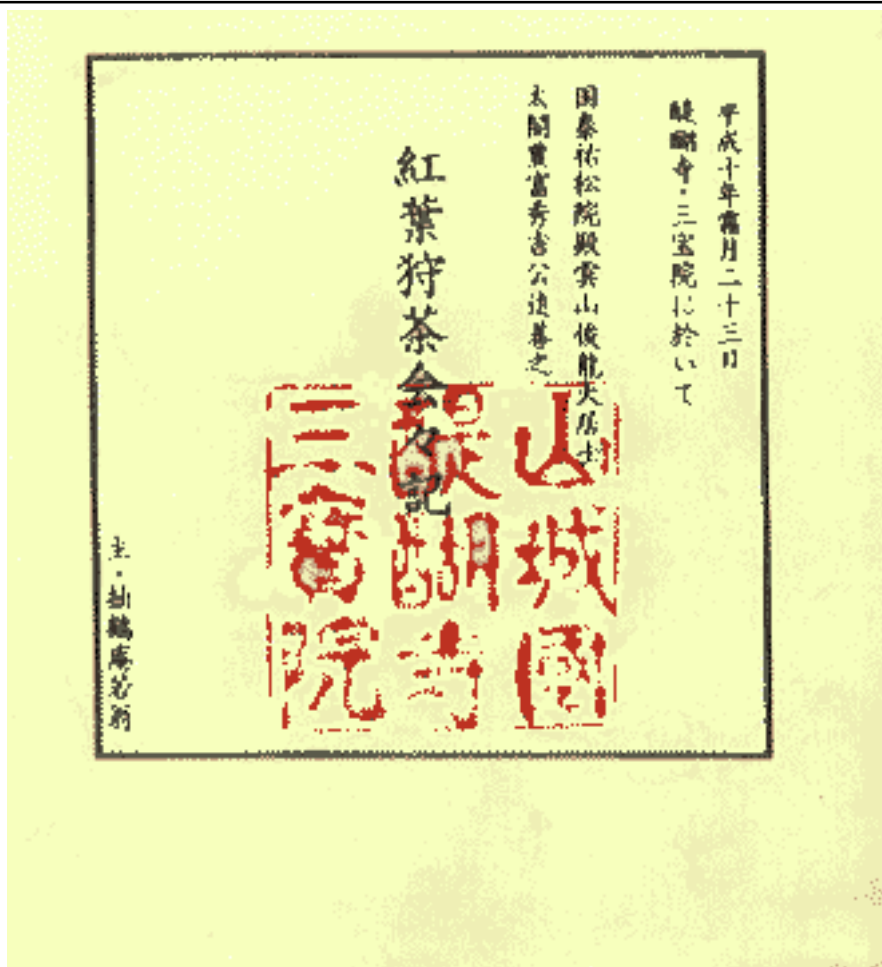 平成十年霜月二十三日
醍醐寺・三宝院に於いて
国泰祐松院殿雲山俊龍大居士
太閤豊富秀吉公追善之
紅葉狩茶会々記
山城國
醍醐寺
三寳院
主・仙鶴庵若翁